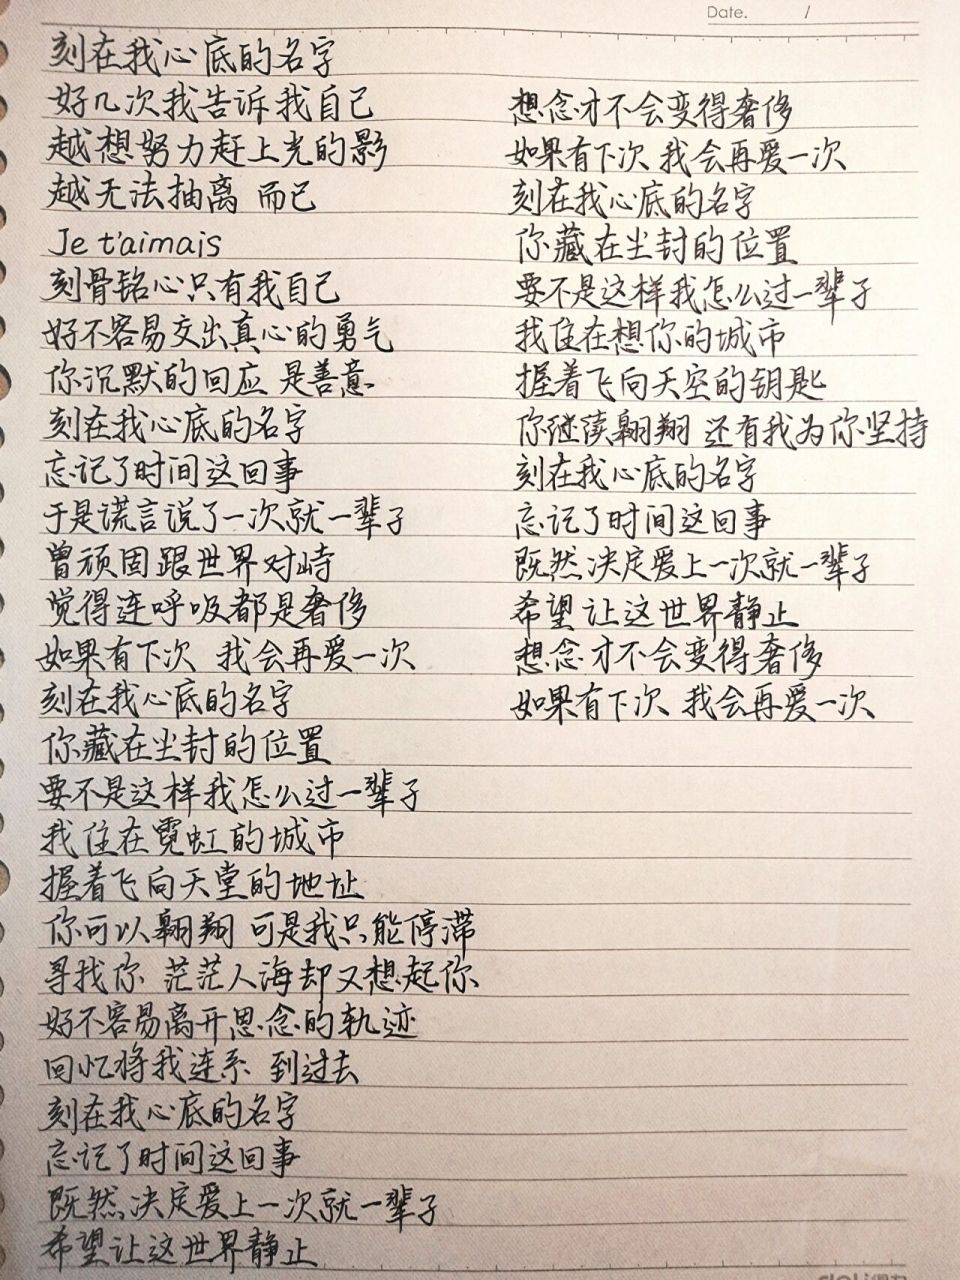 Date. /
刻在我心底的名字
好几次我告诉我自己
越想努力赶上光的影
越无法抽离 而已
Je t'aimais
刻骨铭心只有我自己
好不容易交出真心的勇气
你沉默的回应 是善意
刻在我心底的名字
忘记了时间这回事
于是谎言说了一次就一辈子
曾顽固跟世界对峙
觉得连呼吸都是奢侈
如果有下次 我会再爱一次
刻在我心底的名字
你藏在尘封的位置
要不是这样我怎么过一辈子
我住在霓虹的城市
握着飞向天堂的地址
你可以翱翔 可是我只能停滞
寻找你 茫茫人海却又想起你
好不容易离开思念的轨迹
回忆将我连系 到过去
刻在我心底的名字
忘记了时间这回事
既然决定爱上一次就一辈子
希望让这世界静止
想念才不会变得奢侈
如果有下次 我会再爱一次
刻在我心底的名字
你藏在尘封的位置
要不是这样我怎么过一辈子
我住在想你的城市
握着飞向天空的钥匙
你继续翱翔 还有我为你坚持
刻在我心底的名字
忘记了时间这回事
既然决定爱上一次就一辈子
希望让这世界静止
想念才不会变得奢侈
如果有下次 我会再爱一次